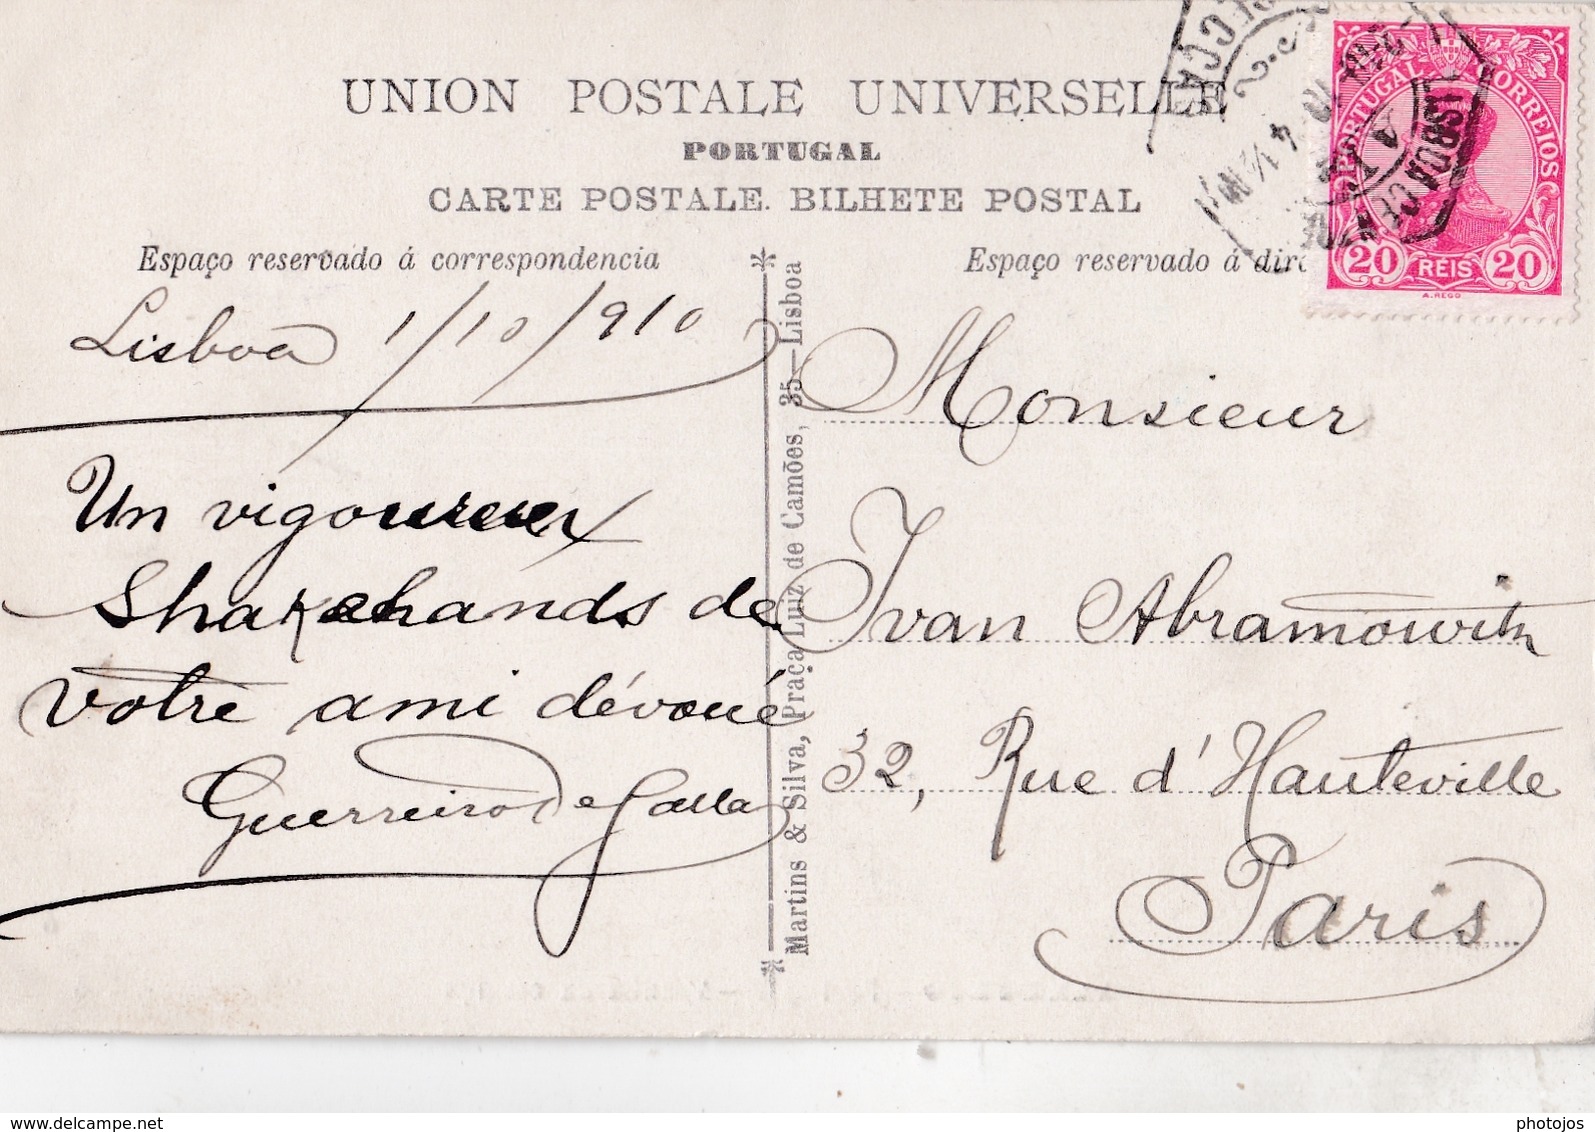 UNION POSTALE UNIVERSELLE
PORTUGAL
CARTE POSTALE. BILHETE POSTAL
Espaço reservado á correspondencia
Espaço reservado á
PORTUGAL CORREIOS
20 REIS 20
A. REGO
LISBOA
Lisboa 1/10/910
Un vigoureux
Shakehands de
votre ami dévoué
Guerreiro
Martins & Silva, Praça Luiz de Camões, 35—Lisboa
Monsieur
Ivan Abramowitz
32, Rue d'Hauteville
Paris
delcampe.net
photojos